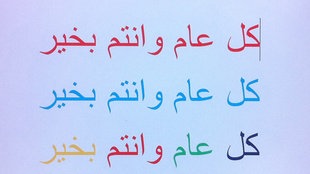 كل عام وانتم بخير
كل عام وانتم بخير
كل عام وانتم بخير